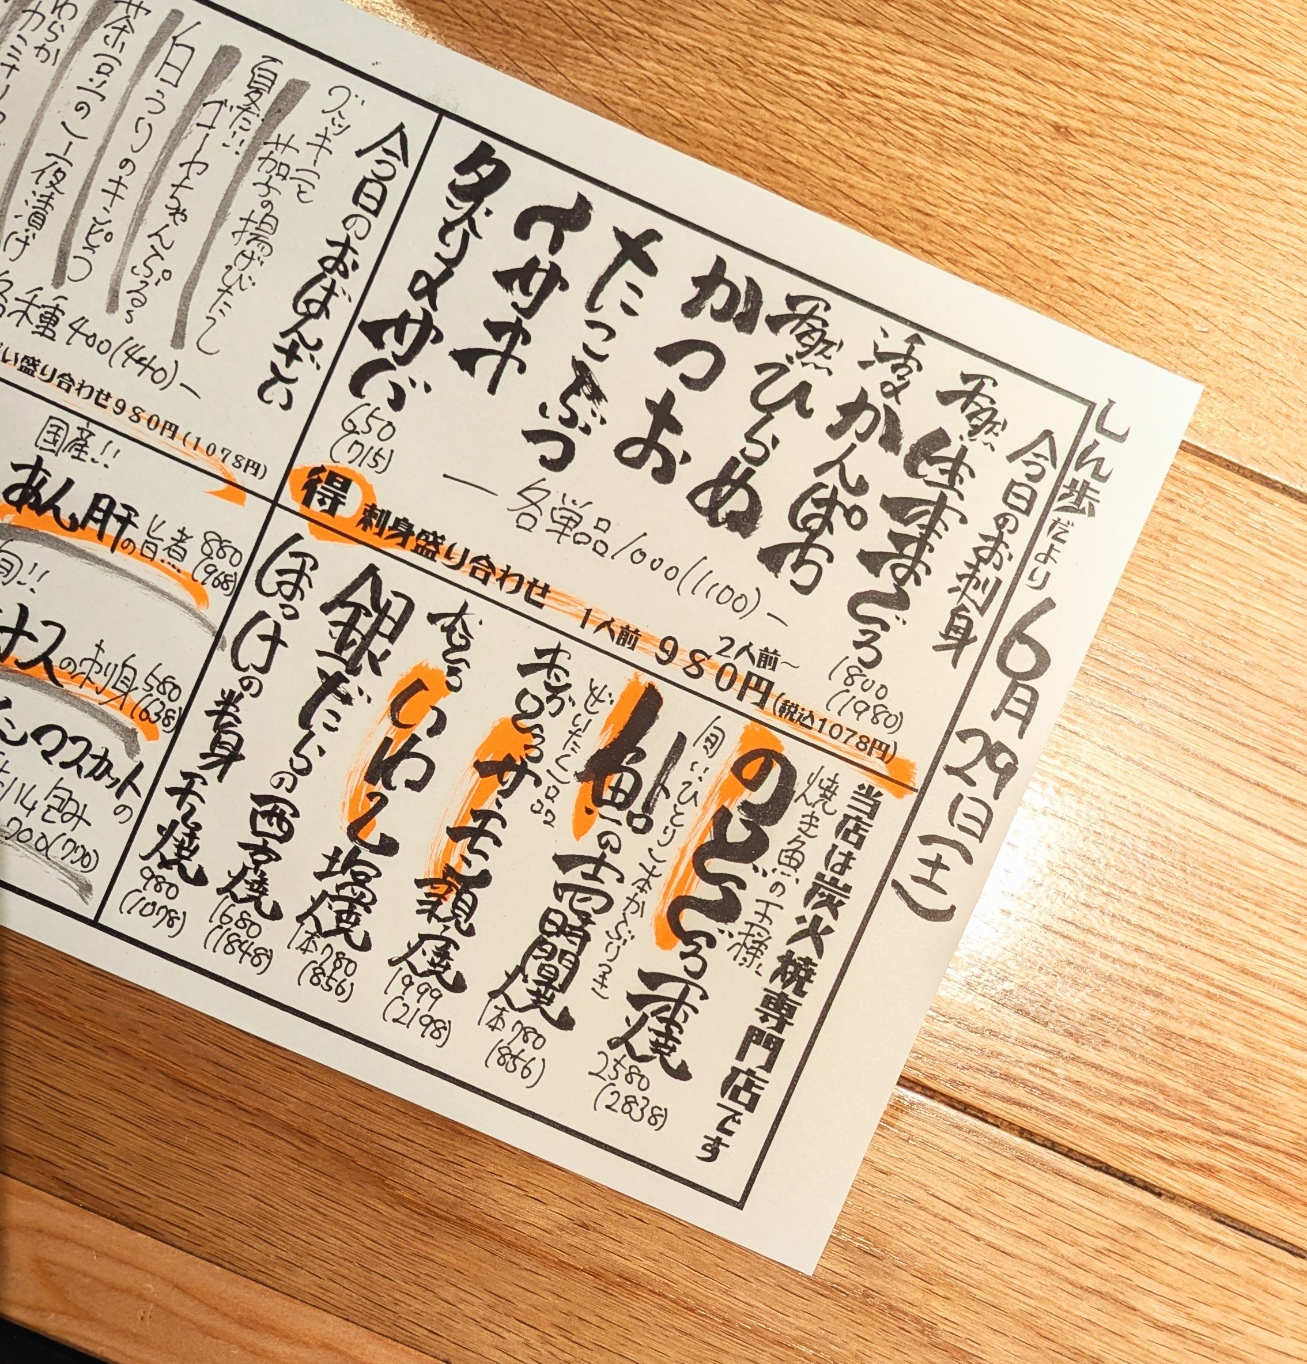 しん歩だより 6月29日(土)
今日のお刺身
天然生本まぐろ 1800(1980)
活かんぱち
天然ひらめ
かつお
たこぶつ
イサキ
炙り〆サバ 650(715)
― 各単品1000(1100)―
得 刺身盛り合わせ 1人前 980円(税込1078円) 2人前~
当店は炭火焼専門店です
焼き魚の王様
のどぐろ一本焼 2580(2838)
旬!!ひとり一本かぶりつき
鮎の
1本780(856)
サーモン
焼 1999(2198)
いわし塩焼 1本780(856)
銀だらの西京焼 1680(1848)
ほっけの半身干し焼 980(1078)
今日のおばんざい
ズッキーニと茄子の揚げびたし
夏だ!!ゴーヤちゃんぷる~
白うりのキムチ
茶豆の一夜漬け
各種400(440)―
盛り合わせ980円(1078円)
国産!!
あん肝の旨煮 880(968)
旬!!
ナスの刺身 580(638)
マスカットの
包み
700(770)